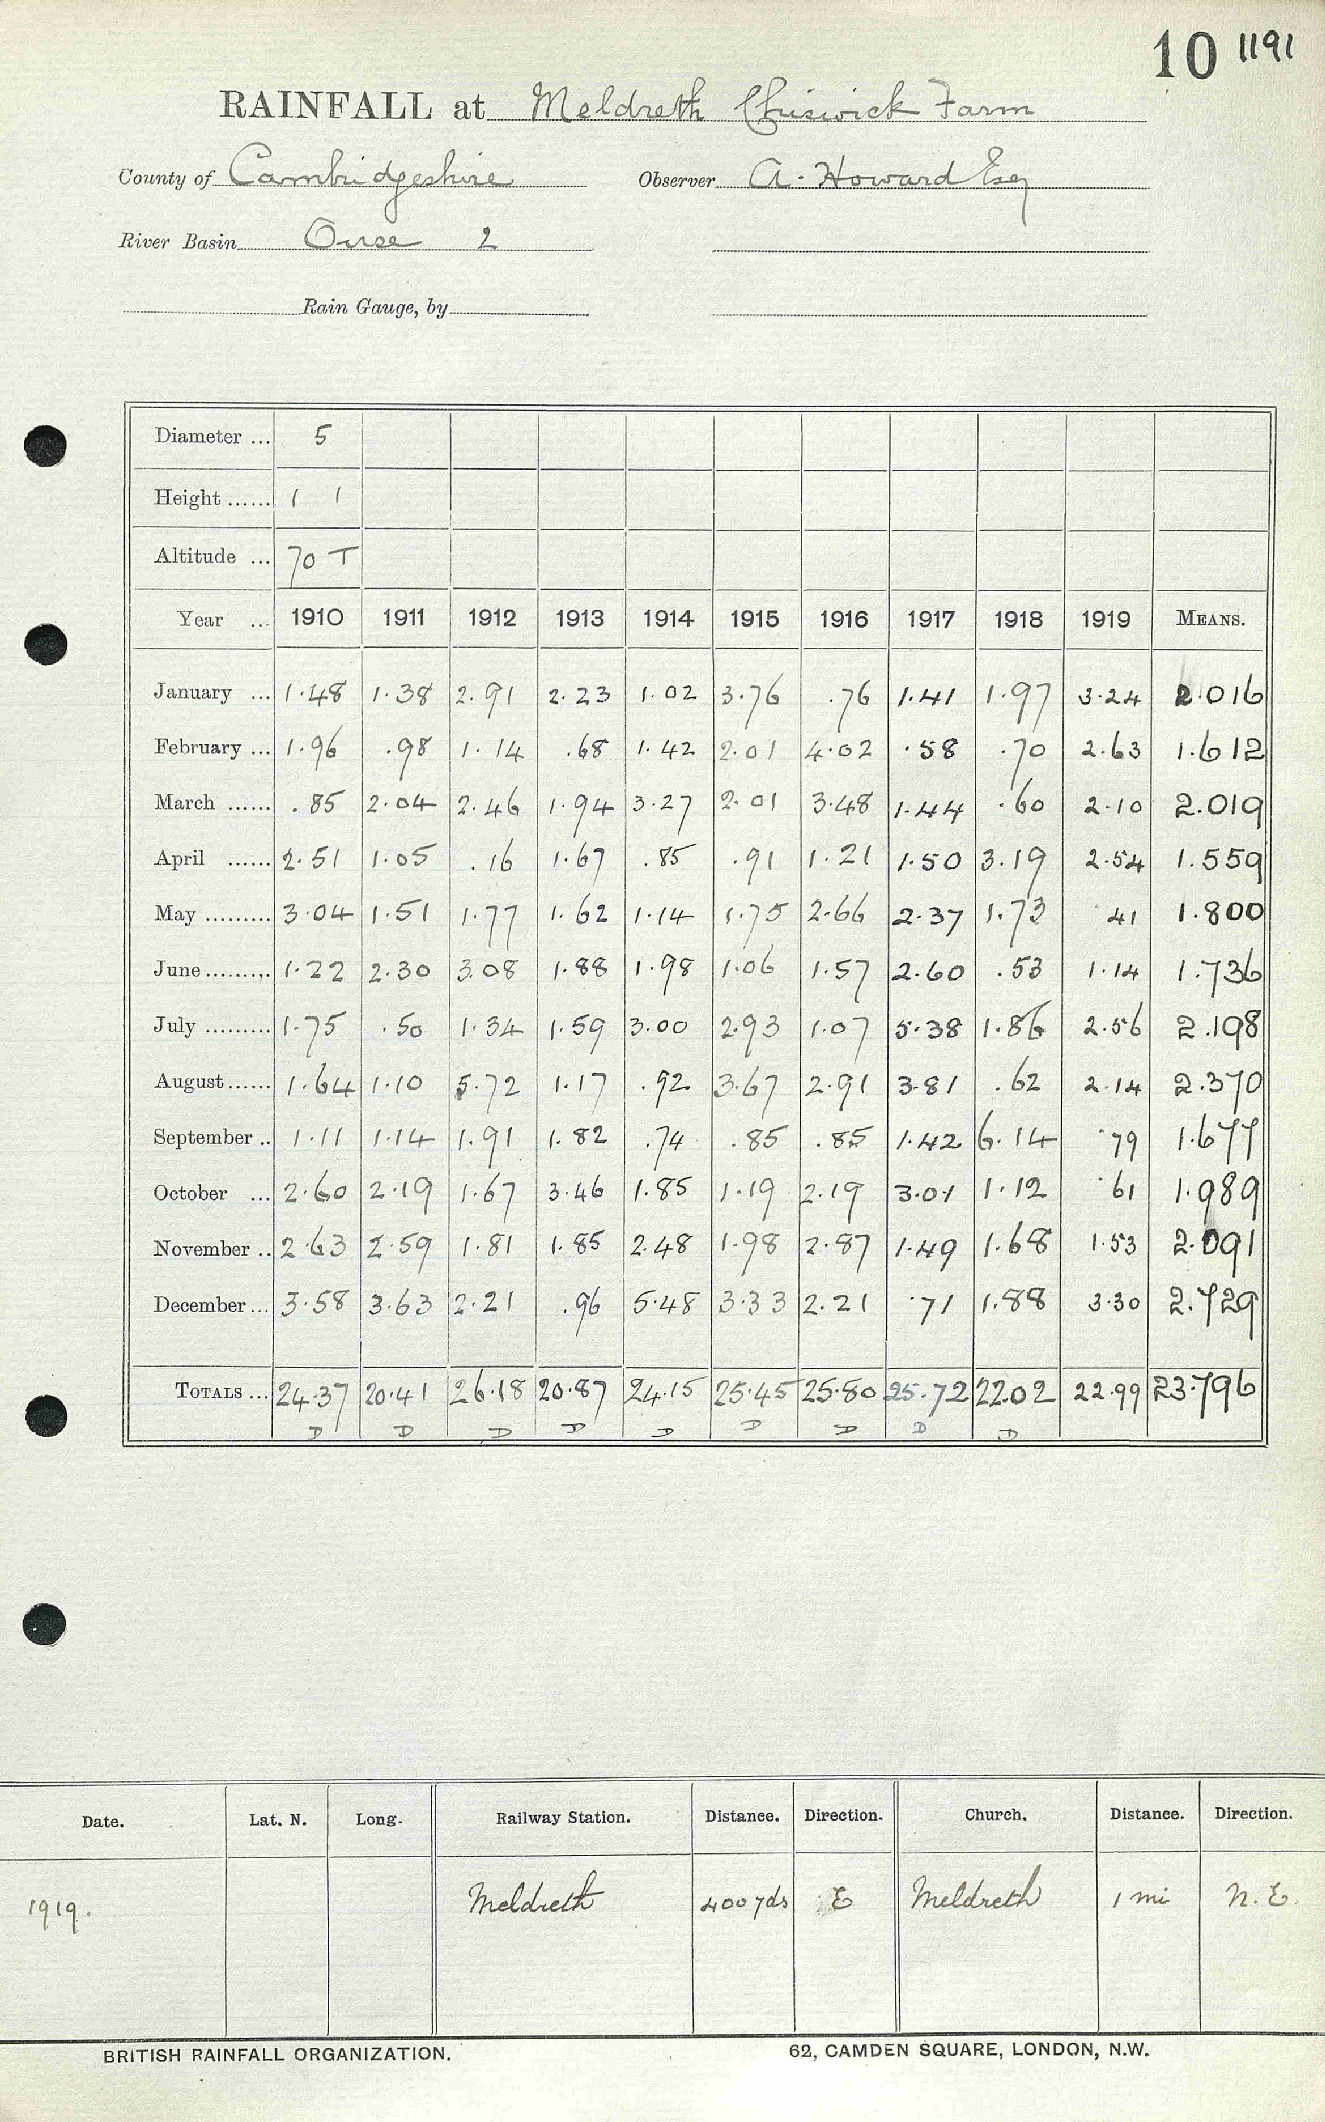 10 1191
RAINFALL at Meldreth Chiswick Farm
County of Cambridgeshire Observer A. Howard Esq
River Basin Ouse 2
Rain Gauge, by
Diameter ... 5
Height ...... 1 1
Altitude ... 70 T
Year ... 1910 1911 1912 1913 1914 1915 1916 1917 1918 1919 MEANS.
January ... 1.48 1.38 2.91 2.23 1.02 3.76 .76 1.41 1.97 3.24 2.016
February ... 1.96 .98 1.14 .68 1.42 2.01 4.02 .58 .70 2.63 1.612
March ...... .85 2.04 2.46 1.94 3.27 2.01 3.48 1.44 .60 2.10 2.019
April ...... 2.51 1.05 .16 1.67 .85 .91 1.21 1.50 3.19 2.54 1.559
May ......... 3.04 1.51 1.77 1.62 1.14 1.75 2.66 2.37 1.73 .41 1.800
June ......... 1.22 2.30 3.08 1.88 1.98 1.06 1.57 2.60 .53 1.14 1.736
July ......... 1.75 .50 1.34 1.59 3.00 2.93 1.07 5.38 1.86 2.56 2.198
August ...... 1.64 1.10 5.72 1.17 .92 3.67 2.91 3.81 .62 2.14 2.370
September .. 1.11 1.14 1.91 1.82 .74 .85 .85 1.42 6.14 .79 1.677
October ... 2.60 2.19 1.67 3.46 1.85 1.19 2.19 3.01 1.12 .61 1.989
November .. 2.63 2.59 1.81 1.85 2.48 1.98 2.87 1.49 1.68 1.53 2.091
December ... 3.58 3.63 2.21 .96 5.48 3.33 2.21 .71 1.88 3.30 2.729
TOTALS ... 24.37 20.41 26.18 20.87 24.15 25.45 25.80 25.72 22.02 22.99 23.796
D D D D D D D D D
Date. Lat. N. Long. Railway Station. Distance. Direction. Church. Distance. Direction.
1919. Meldreth 400 yds E Meldreth 1 mi N.E.
BRITISH RAINFALL ORGANIZATION. 62, CAMDEN SQUARE, LONDON, N.W.